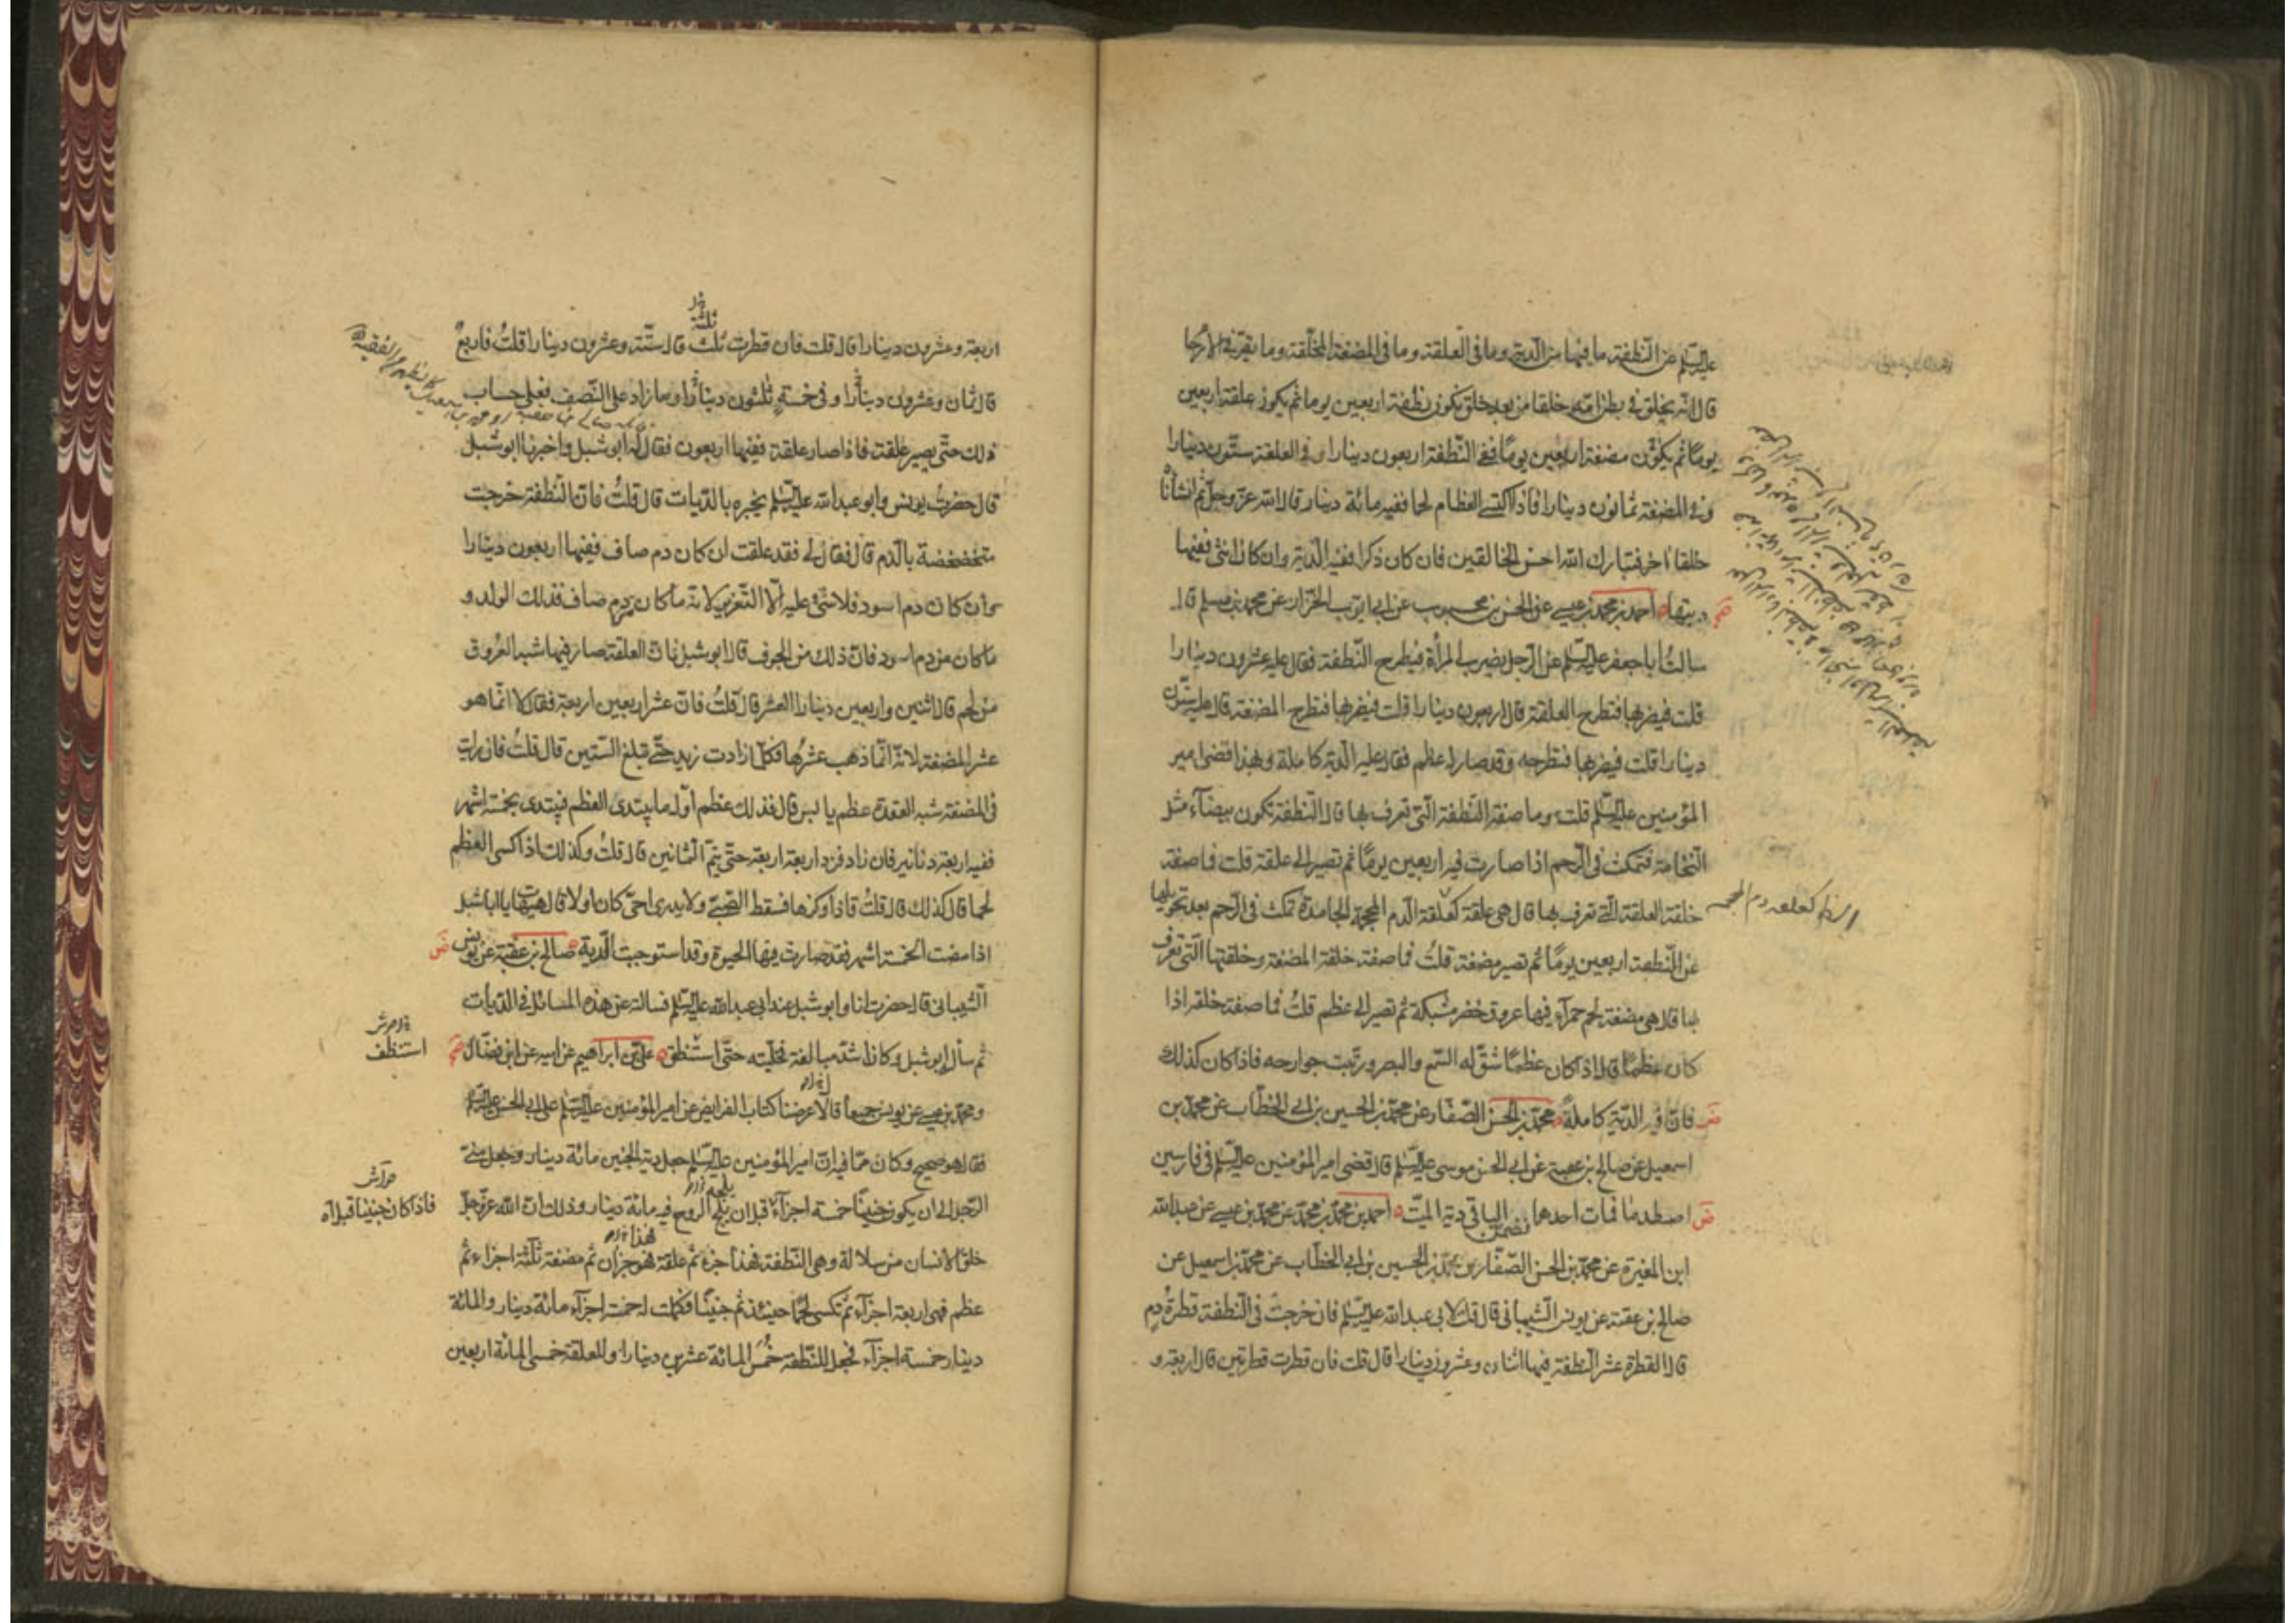 عليه السلم عن النطفة ما فيها من الدية وما في العلقة وما في المضغة المخلقة وما يقر في الارحام
قال انه يخلق في بطن امه خلقا من بعد خلق يكون نطفة اربعين يوما ثم يكون علقة اربعين
يوما ثم يكون مضغة اربعين يوما ففي النطفة اربعون دينارا وفي العلقة ستون دينارا
وفي المضغة ثمانون دينارا فاذا اكتسى العظام لحما ففيه مائة دينار قال الله عز وجل ثم انشأناه
خلقا اخر فتبارك الله احسن الخالقين فان كان ذكرا ففيه الدية وان كان انثى ففيها
ديتها ه احمد بن محمد بن عيسى عن الحسن بن محبوب عن ابي ايوب الخزاز عن محمد بن مسلم قال
سالت ابا جعفر عليه السلم عن الرجل يضرب المرأة فيطرح النطفة فقال عليه عشرون دينارا
قلت فيضربها فتطرح العلقة قال اربعون دينارا قلت فيضربها فتطرح المضغة قال عليه ستون
دينارا قلت فيضربها فتطرحه وقد صار له عظم فقال عليه الدية كاملة وبهذا قضى امير
المؤمنين عليه السلم قلت وما صفة النطفة التي تعرف بها قال النطفة تكون بيضاء مثل
النخامة فتمكث في الرحم اذا صارت فيه اربعين يوما ثم تصير الى علقة قلت فما صفة
خلقة العلقة التي تعرف بها قال هي علقة كعلقة الدم المحجمة الجامدة تمكث في الرحم بعد تحويلها
عن النطفة اربعين يوما ثم تصير مضغة قلت فما صفة خلقة المضغة وخلقتها التي تعرف
بها قال هي مضغة لحم حمراء فيها عروق خضر مشبكة ثم تصير الى عظم قلت فما صفة خلقه اذا
كان عظما قال اذا كان عظما شق له السمع والبصر ورتبت جوارحه فاذا كان كذلك
فان فيه الدية كاملة ه محمد بن الحسن الصفار عن محمد بن الحسين بن ابي الخطاب عن محمد بن
اسمعيل عن صالح بن عقبة عن ابي الحسن موسى عليه السلم قال قضى امير المؤمنين عليه السلم في فارسين
اصطدما فمات احدهما فضمن الباقي دية الميت ه احمد بن محمد بن محمد عن محمد بن عيسى عن عبد الله
ابن المغيرة عن محمد بن الحسن الصفار عن محمد بن الحسين بن ابي الخطاب عن محمد بن اسمعيل عن
صالح بن عقبة عن يونس الشيباني قال قلت لابي عبد الله عليه السلم فان خرجت في النطفة قطرة دم
قال القطرة عشر النطفة فيها اثنان وعشرون دينارا قال قلت فان قطرت قطرتين قال اربعة و
اربعة وعشرون دينارا قال قلت فان قطرت ثلث قال ستة وعشرون دينارا قلت فاربع
ثلثة
قال ثمان وعشرون دينارا وفي خمسة ثلثون دينارا وما زاد على النصف فعلى حساب
ذلك حتى يصير علقة فاذا صار علقة ففيها اربعون فقال له ابو شبل واخبرنا ابو شبل
قال حضرت يونس وابو عبد الله عليه السلم يخبره بالديات قال قلت فان النطفة خرجت
متخضخضة بالدم قال فقال لي فقد علقت ان كان دم صاف ففيها اربعون دينارا
وان كان دم اسود فلا شيء عليه الا التعزير لانه ما كان من دم صاف فذلك الولد و
ما كان من دم اسود فان ذلك من الجوف قال ابو شبل فان العلقة صار فيها شبه العروق
من لحم قال اثنين واربعين دينارا العشر قال قلت فان عشر اربعين اربعة فقال لا انما هو
عشر المضغة لانه انما ذهب عشرها فكلما زادت زيد حتى تبلغ الستين قال قلت فان رايت
في المضغة شبه العقدة عظم يابس قال فذلك عظم اول ما يبتدى العظم فيبتدى بخمسة اشهر
ففيه اربعة دنانير فان زاد فزد اربعة اربعة حتى يتم الثمانين قال قلت وكذلك اذا كسى العظم
لحما قال كذلك قال قلت فاذا وكزها فسقط الصبي ولا يدرى احي كان او لا قال هيهات يا ابا شبل
اذا مضت الخمسة اشهر فقد صارت فيها الحيوة وقد استوجبت الدية ه صالح بن عقبة عن يونس
الشيباني قال حضرت انا وابو شبل عند ابي عبد الله عليه السلم فسالته عن هذه المسائل في الديات
ثم سأل ابو شبل وكان اشد مبالغة فخليته حتى استنطق ه علي بن ابراهيم عن ابيه عن ابن فضال
استنظف
ومحمد بن عيسى عن يونس جميعا قالا عرضنا كتاب الفرايض عن امير المؤمنين عليه السلم على ابي الحسن عليه السلم
فقال هو صحيح وكان مما فيه ان امير المؤمنين عليه السلم جعل دية الجنين مائة دينار وجعل مني
الرجل الى ان يكون جنينا خمسة اجزاء قبل ان يلج الروح فيه مائة دينار وذلك ان الله عز وجل
فاذا كان جنينا قبل ان
خلق الانسان من سلالة وهي النطفة فهذا جزء ثم علقة فهو جزان ثم مضغة ثلثة اجزاء ثم
عظم فهي اربعة اجزاء ثم تكسى لحما حينئذ ثم جنينا فكملت له خمسة اجزاء مائة دينار والمائة
دينار خمسة اجزاء فجعل للنطفة خمس المائة عشرين دينارا وللعلقة خمسي المائة اربعين